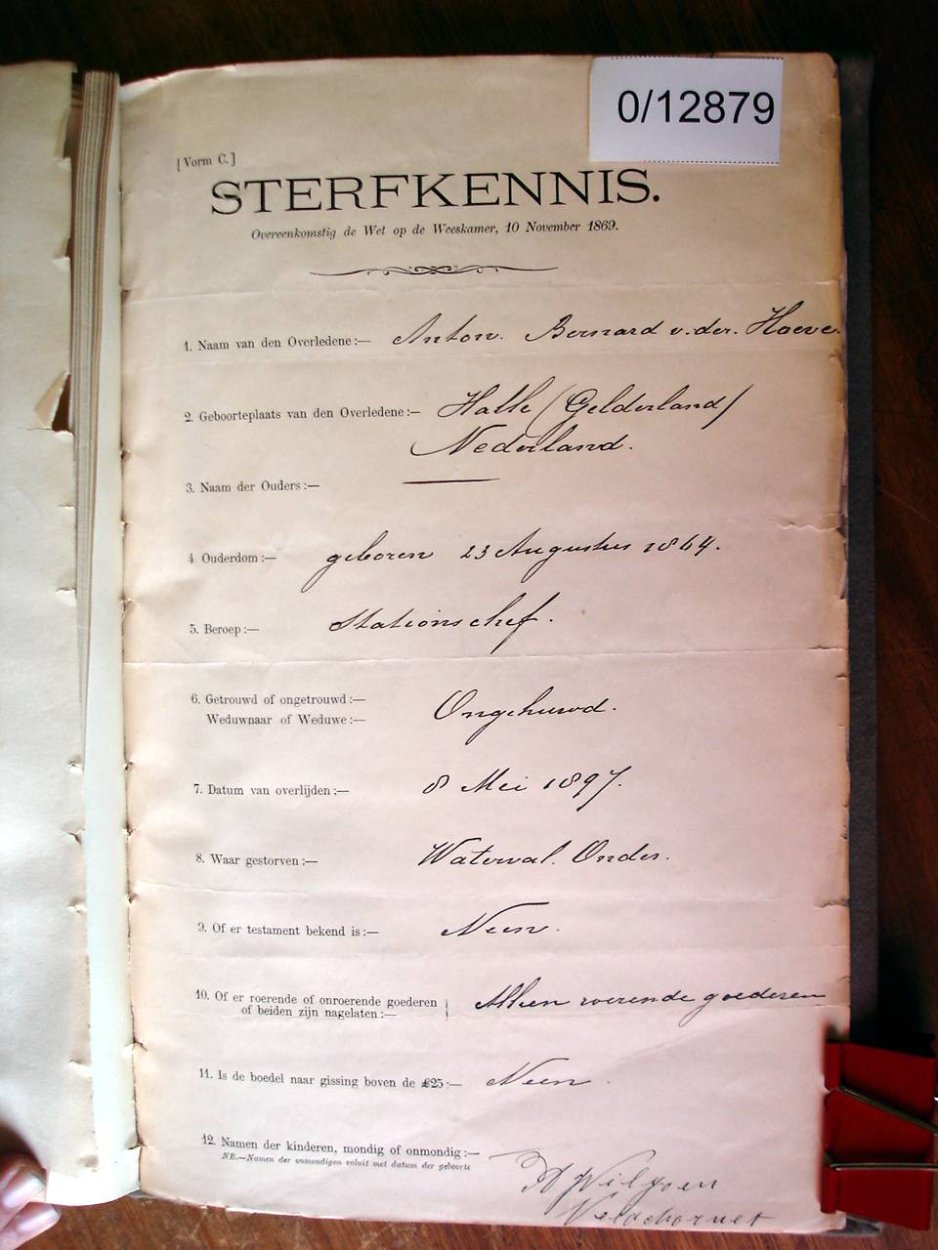 0/12879
[Vorm C.]
STERFKENNIS.
Overeenkomstig de Wet op de Weeskamer, 10 November 1869.
1. Naam van den Overledene:— Anton. Bernard v. der. Haeve.
2. Geboorteplaats van den Overledene:— Halle (Gelderland)
Nederland.
3. Naam der Ouders:— —
4. Ouderdom:— geboren 23 Augustus 1864.
5. Beroep:— Stationschef.
6. Getrouwd of ongetrouwd:—
Weduwnaar of Weduwe:— Ongehuwd.
7. Datum van overlijden:— 8 Mei 1897.
8. Waar gestorven:— Waterval. Onder.
9. Of er testament bekend is:— Neen.
10. Of er roerende of onroerende goederen
of beiden zijn nagelaten:— Alleen roerende goederen
11. Is de boedel naar gissing boven de £25:— Neen.
12. Namen der kinderen, mondig of onmondig:— —
NB.—Namen der onmondigen voluit met datum der geboorte
Viljoen
Veldcornet